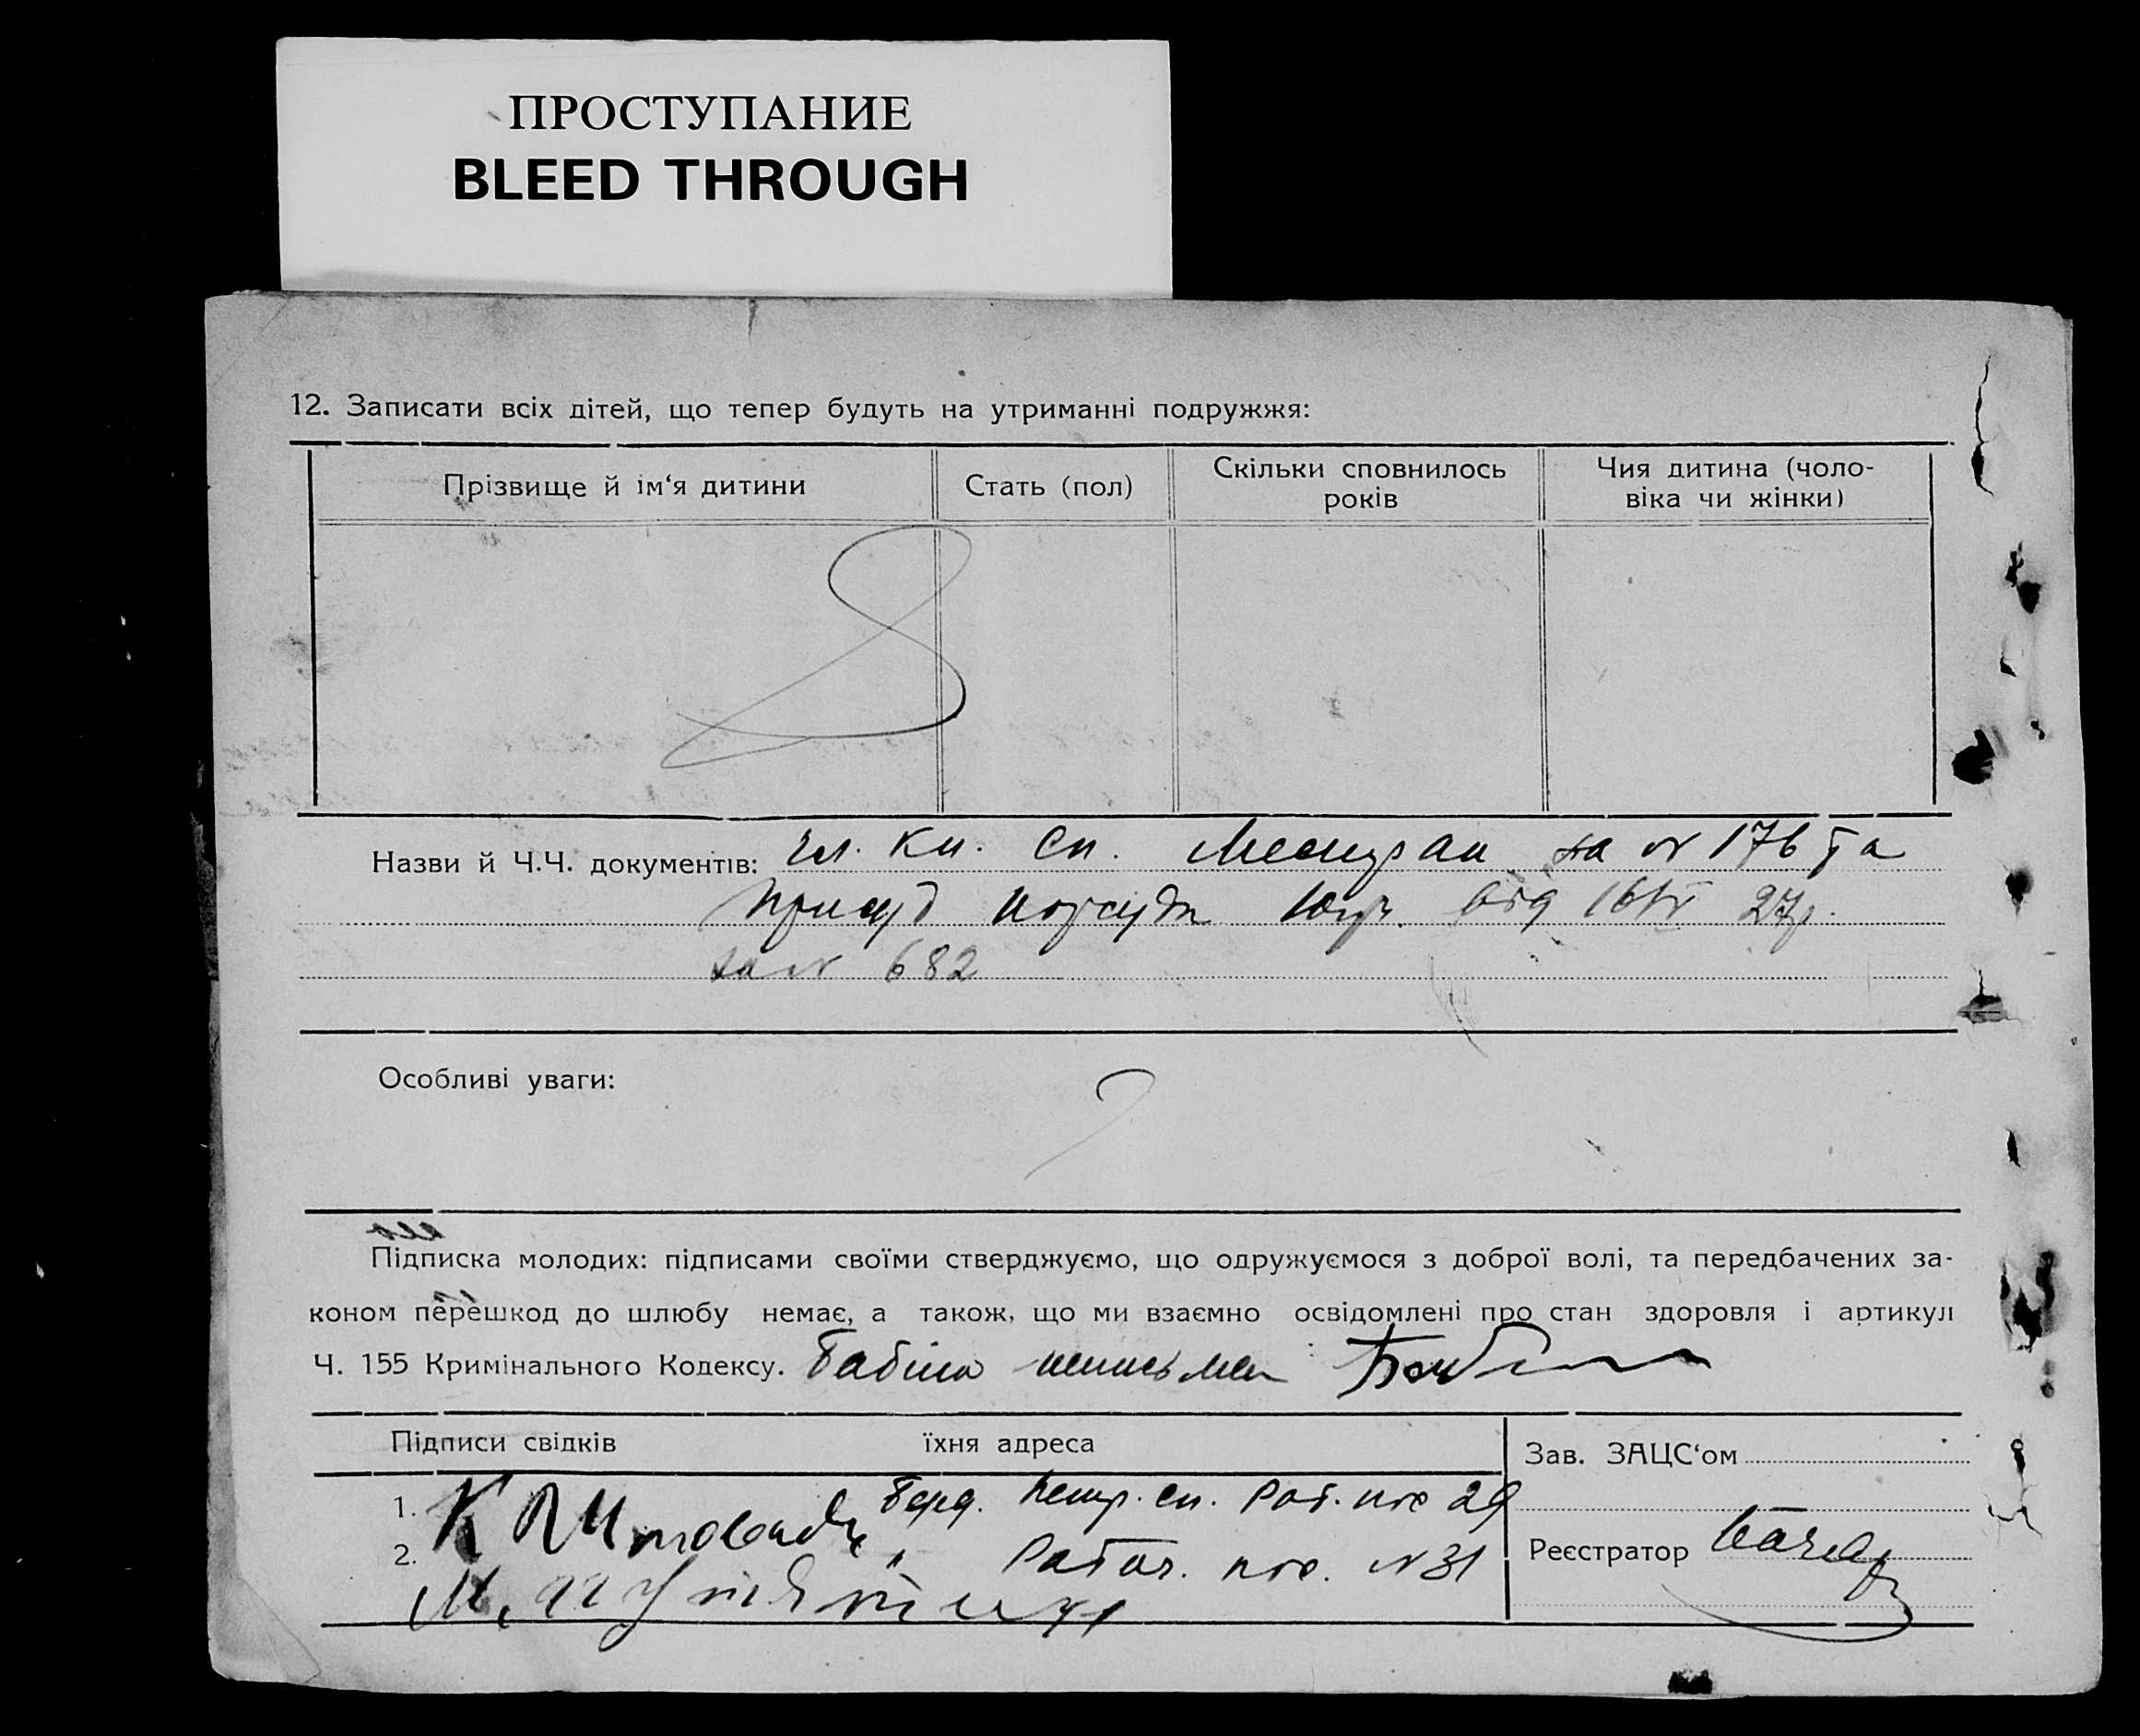 ПРОСТУПАНИЕ
BLEED THROUGH
12. Записати всіх дітей, що тепер будуть на утриманні подружжя:
Прізвище й ім‘я дитини
Стать (пол)
Скільки сповнилось
років
Чия дитина (чоло-
віка чи жінки)
Назви й Ч.Ч. документів: чл. кн. Сп. за № 176 та
від 16/IV 27р.
за № 682
Особливі уваги:
Підписка молодих: підписами своїми стверджуємо, що одружуємося з доброї волі, та передбачених за-
коном перешкод до шлюбу немає, а також, що ми взаємно освідомлені про стан здоровля і артикул
Ч. 155 Кримінального Кодексу.
Підписи свідків
їхня адреса
Зав. ЗАЦС‘ом
1. Петр. сп. Роб. пос 29
2. " Рабоч. пос. № 31
Реєстратор